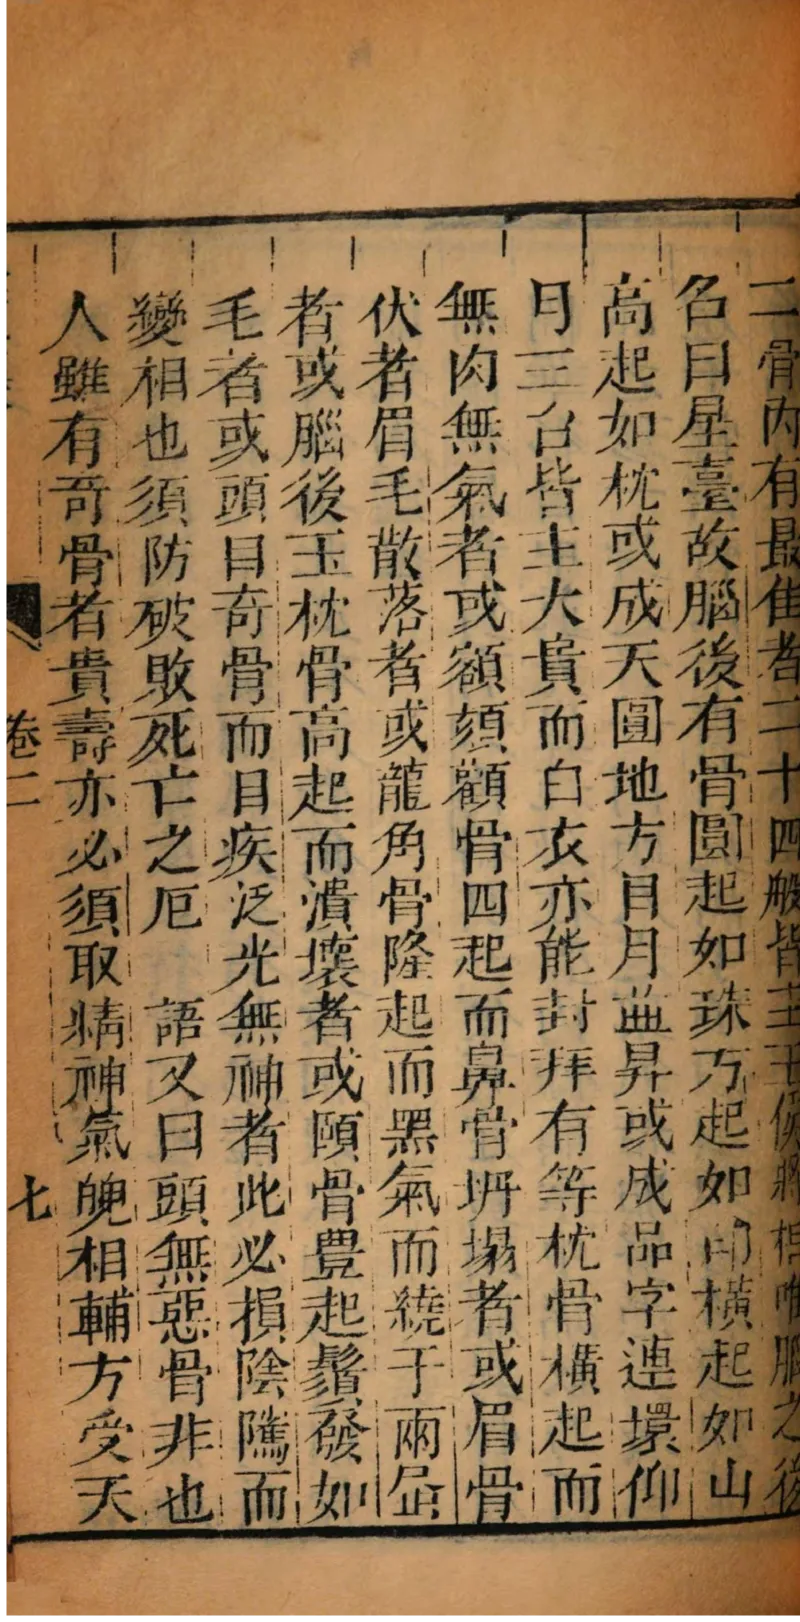 二骨內有最佳者二十四般皆主王侯將相唯腦之後
名曰星臺故腦後有骨圓起如珠方起如印橫起如山
高起如枕或成天圓地方日月並昇或成品字連環仰
月三台皆主大貴而白衣亦能封拜有等枕骨橫起而
無肉無氣者或額頦顴骨四起而鼻骨坍塌者或眉骨
伏者眉毛散落者或龍角骨隆起而黑氣而繞于兩
者或腦後玉枕骨高起而潰壞者或頤骨豊起鬚發如
毛者或頭目奇骨而目疾泛光無神者此必損陰隲而
變相也須防破敗死亡之厄 語又曰頭無惡骨非也
人雖有奇骨者貴壽亦必須取精神氣魄相輔方受天
卷二
七